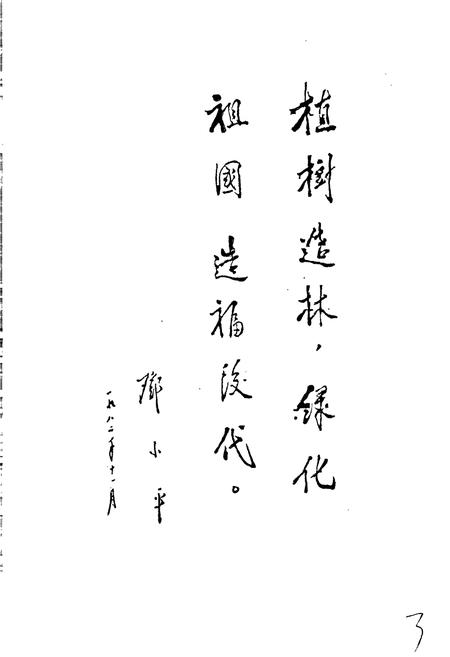 植樹造林，綠化
祖國造福後代。
鄧小平
一九八二年十一月
3